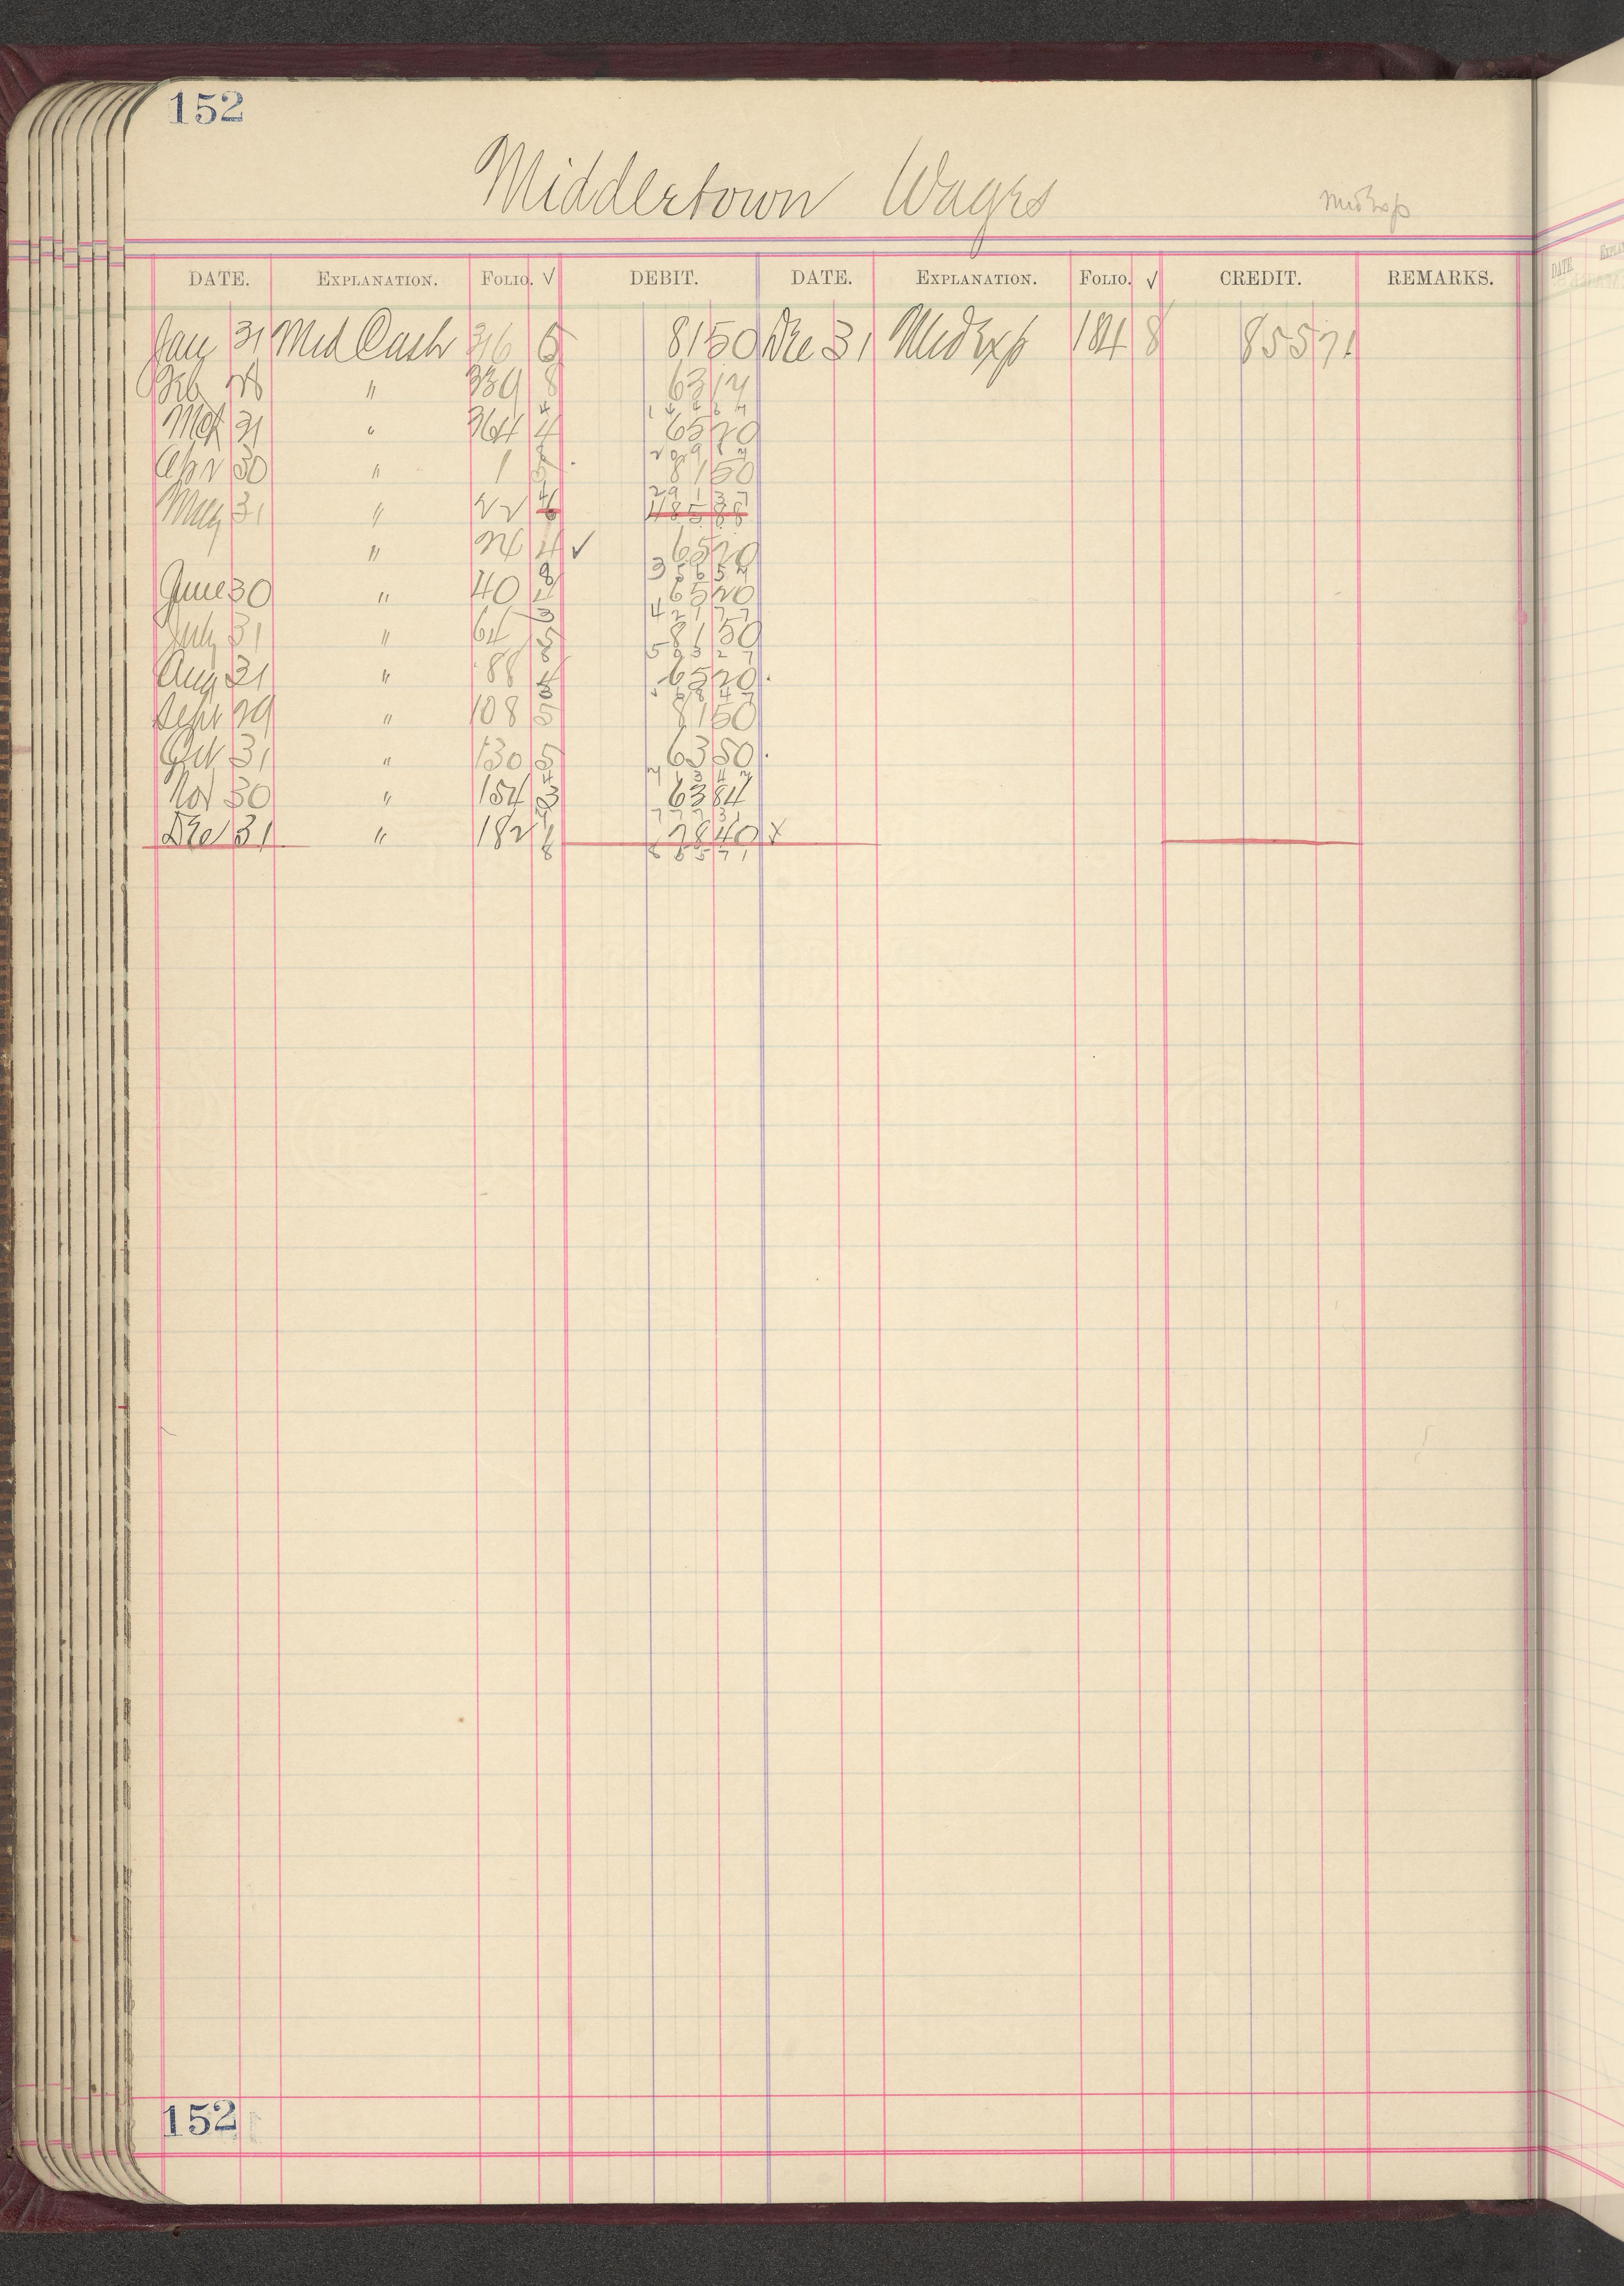 152
Middletown Wages
Med Exp
DATE. EXPLANATION. FOLIO. √ DEBIT. DATE. EXPLANATION. FOLIO. √ CREDIT. REMARKS.
Jany 31 Med Cash 316 5 81 50 Dec 31 Med Exp 184 8 855 71
Feb 28 " 339 8 63 17
4 144 67
Mch 31 " 364 4 65 20
209 87
Apr 30 " 1 81 50
291 37
May 31 " 22
" 24 4 √ 65 20
356 57
June 30 " 40 4 65 20
421 77
July 31 " 64 5 81 50
503 27
Aug 31 " 88 4 65 20
568 47
Sept 29 " 108 5 81 50
Oct 31 " 130 5 63 50
713 47
Nov 30 " 154 3 63 84
777 31
Dec 31 " 182 78 40 x
8 855 71
152